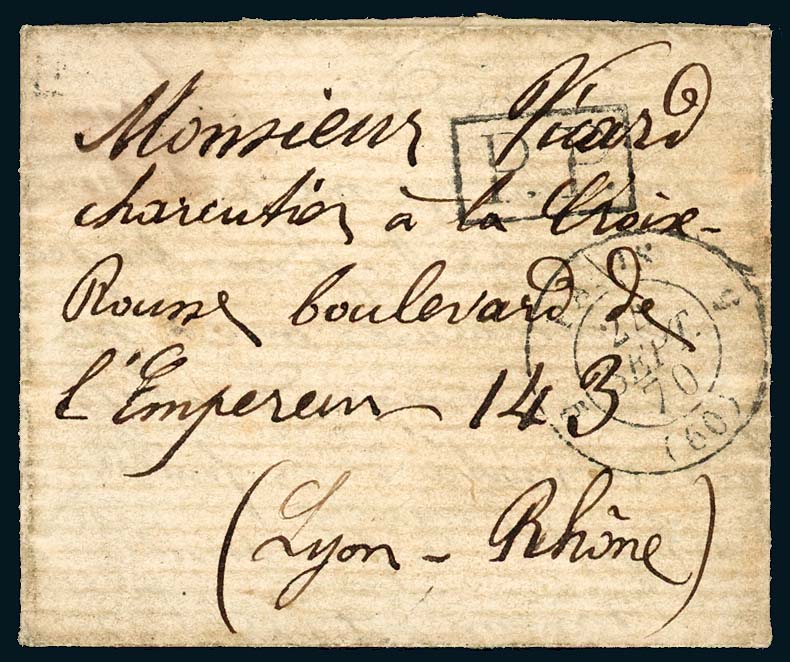 Monsieur Vicard
P.P.
charcutier à la Croix-
Rousse boulevard de
l'Empereur 143
SEPT.
70
(60)
(Lyon - Rhône)